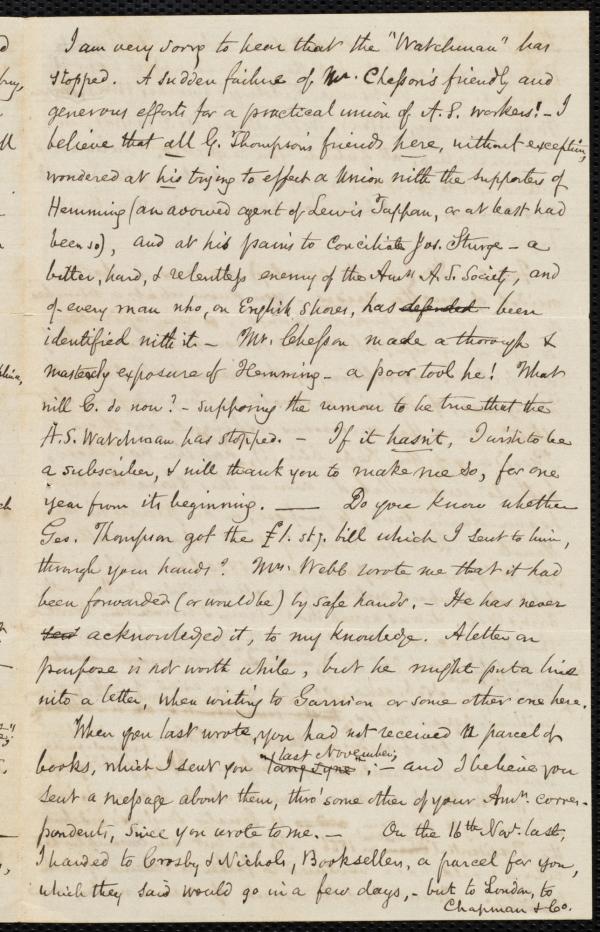 I am very sorry to hear that the "Watchman" has
stopped. A sudden failure of Mr. Chesson's friendly and
generous efforts for a practical union of A. S. workers! - I
believe that all G. Thompson's friends here, without exception,
wondered at his trying to effect a Union with the supporters of
Hemming (an avowed agent of Lewis Tappan, or at least had
been so), and at his pains to conciliate Jos. Sturge - a
bitter, hard, & relentless enemy of the Amn A. S. Society, and
of every man who, on English shores, has defended been
identified with it. - Mr. Chesson made a thorough &
masterly exposure of Hemming - a poor tool he! What
will C. do now? - supposing the rumour to be true that the
A. S. Watchman has stopped. - If it hasn't, I wish to be
a subscriber, & will thank you to make me so, for one
year from its beginning. — Do you know whether
Geo. Thompson got the £1. stg. bill which I sent to him,
through your hands? Mrs. Webb wrote me that it had
been forwarded (or would be) by safe hands. - He has never
acknowledged it, to my knowledge. A letter on
purpose is not worth while, but he might put a line
into a letter, when writing to Garrison or some other one here.
When you last wrote, you had not received the parcel of
books, which I sent you "lang syne" last November; - and I believe you
sent a message about them, thro' some other of your Amn. corres-
pondents, since you wrote to me. - On the 16th Nov. last,
I handed to Crosby & Nichols, Booksellers, a parcel for you,
which they said would go in a few days, - but to London, to
Chapman & Co.